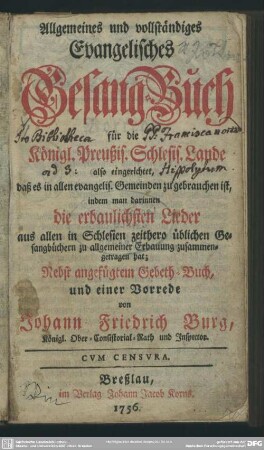 Allgemeines und vollständiges
Evangelisches
Gesang-Buch
Pro Bibliotheca
für die
PP. Franciscanorum
Königl. Preußis. Schlesis. Lande
also eingerichtet,
daß es in allen evangelis. Gemeinden zu gebrauchen ist,
indem man darinnen
die erbaulichsten Lieder
aus allen in Schlesien zeither üblichen Ge-
sangbüchern zu allgemeiner Erbauung zusammen-
getragen hat;
Nebst angefügtem Gebeth-Buch,
und einer Vorrede
von
Johann Friedrich Burg,
Königl. Ober-Consistorial-Rath und Inspector.
CVM CENSVRA.
Breßlau,
im Verlag Johann Jacob Korns.
1756.